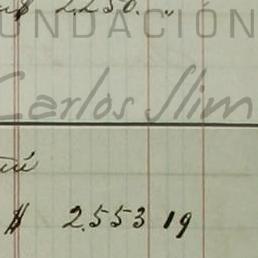 $ 2250. "
FUNDACIÓN
Carlos Slim
$ 2553 19